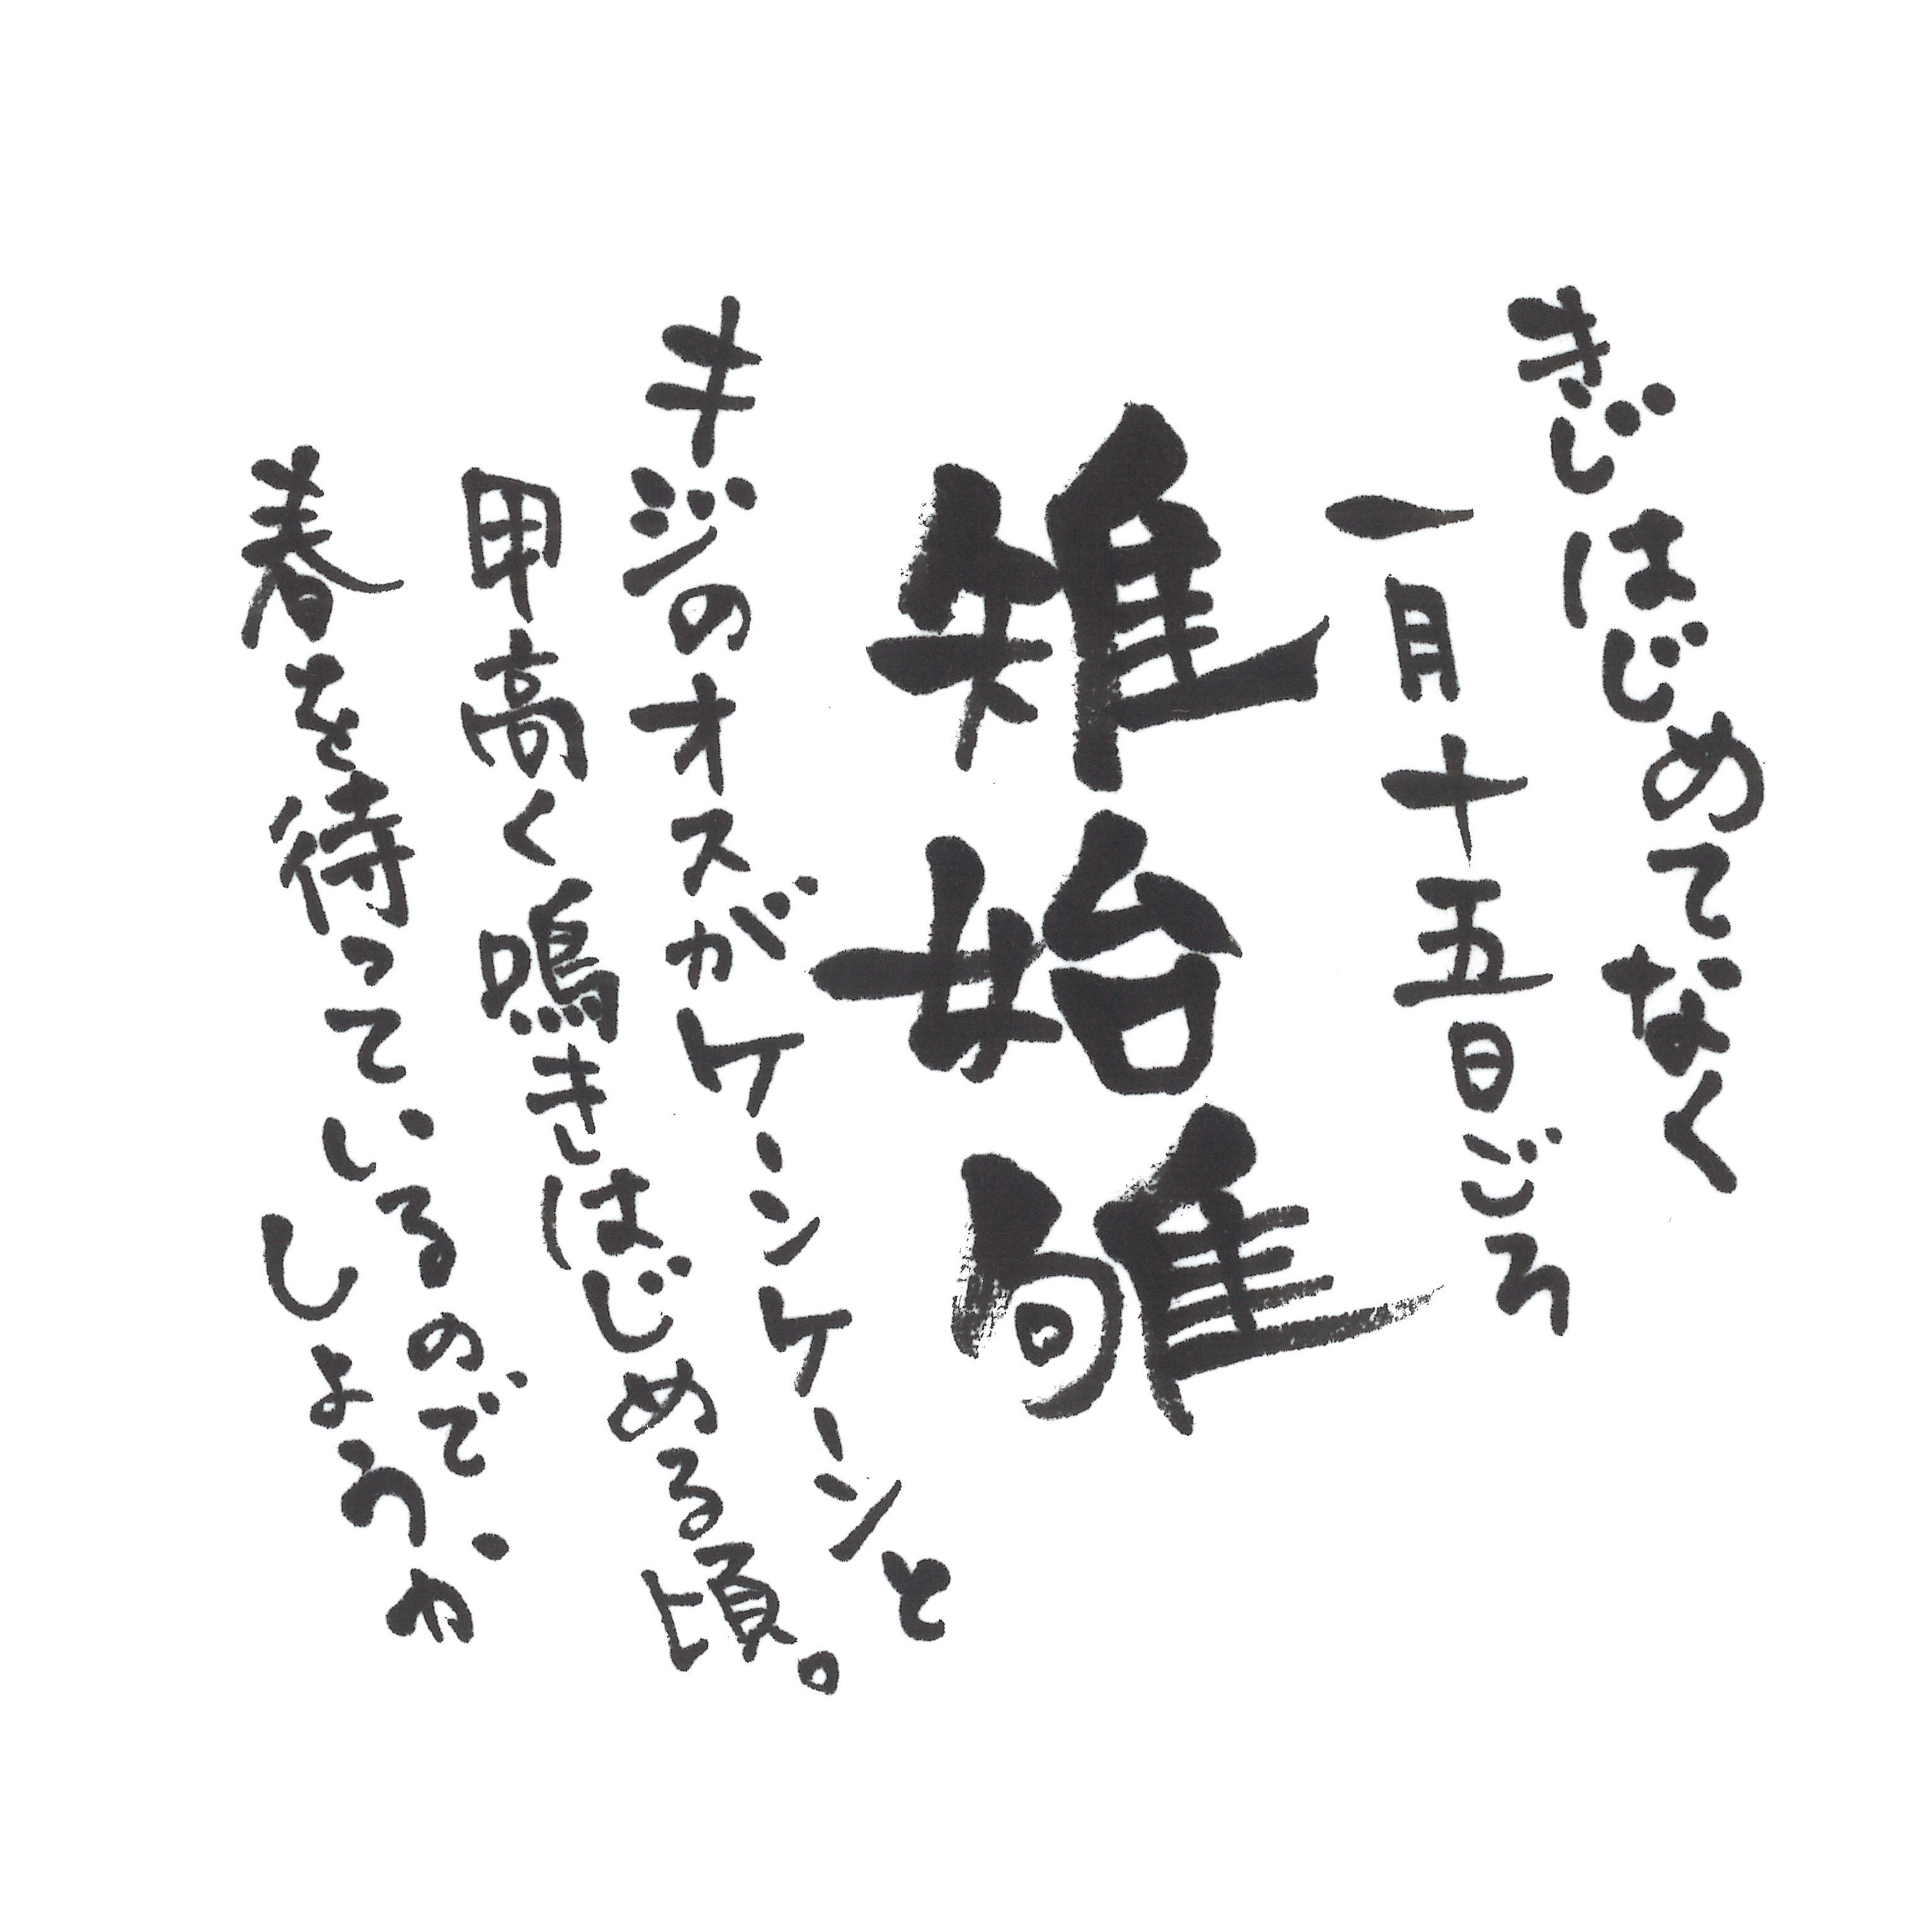 きじはじめてなく
一月十五日ごろ
雉始雊
キジのオスがケーンケーンと
甲高く鳴きはじめる頃。
春を待っているので
しょうか